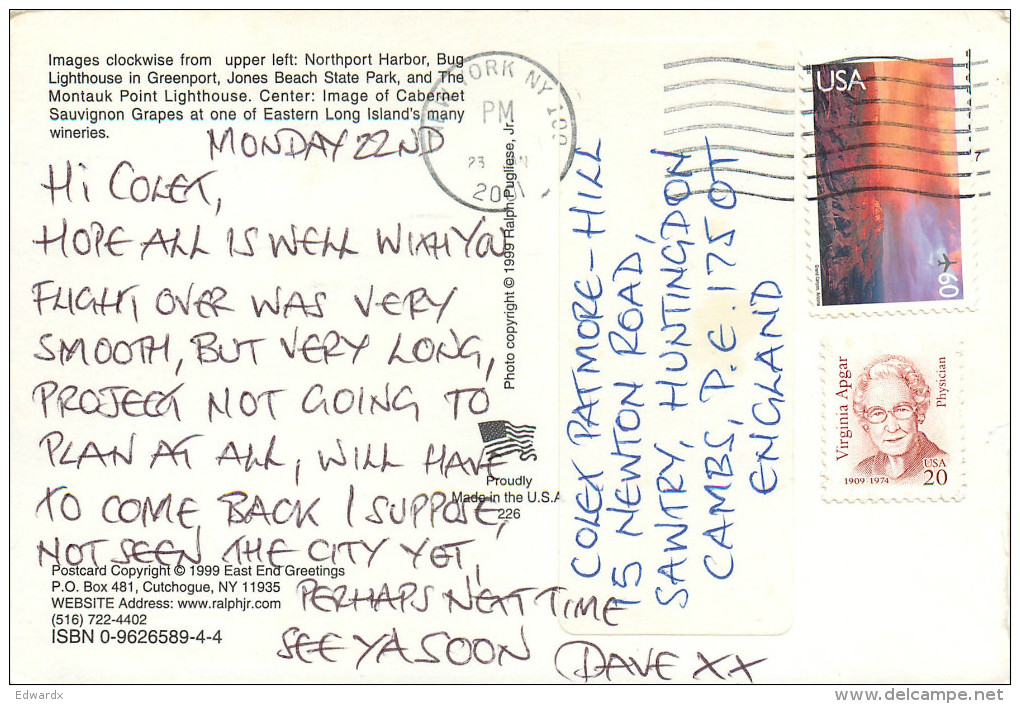 Images clockwise from upper left: Northport Harbor, Bug
Lighthouse in Greenport, Jones Beach State Park, and The
Montauk Point Lighthouse. Center: Image of Cabernet
Sauvignon Grapes at one of Eastern Long Island's many
wineries.
MONDAY 22ND
HI COLET,
HOPE ALL IS WELL WITH YOU
FLIGHT OVER WAS VERY
SMOOTH, BUT VERY LONG,
PROJECT NOT GOING TO
PLAN AT ALL, WILL HAVE
TO COME BACK I SUPPOSE,
NOT SEEN THE CITY YET,
PERHAPS NEXT TIME
SEE YA SOON
DAVE XX
Postcard Copyright © 1999 East End Greetings
P.O. Box 481, Cutchogue, NY 11935
WEBSITE Address: www.ralphjr.com
(516) 722-4402
ISBN 0-9626589-4-4
YORK NY 100
PM
23
2001
Photo copyright © 1999 Ralph Pugliese, Jr.
Proudly
Made in the U.S.A
226
COLET PATMORE-HILL
15 NEWTON ROAD,
SAWTRY, HUNTINGDON
CAMBS, P.E. 175 OT
ENGLAND
USA
60
Grand Canyon, Arizona
Virginia Apgar
Physician
1909 1974
USA
20
Edwardx
delcampe.net